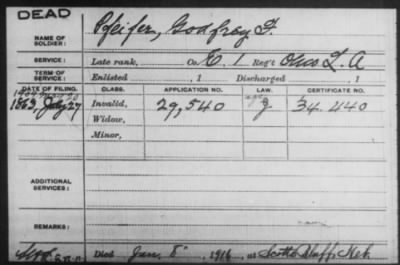 DEAD
NAME OF SOLDIER: Pfeifer, Godfrey F.
SERVICE: Late rank, Co. E. 1 Reg't Ohio L. A
TERM OF SERVICE: Enlisted , 1 Discharged , 1
DATE OF FILING. CLASS. APPLICATION NO. LAW. CERTIFICATE NO.
1863 July 27 Invalid, 29,540 34 440
Widow,
Minor,
ADDITIONAL SERVICES:
REMARKS:
Died Jan. 8 1916, at Scotts Bluff, Neb.